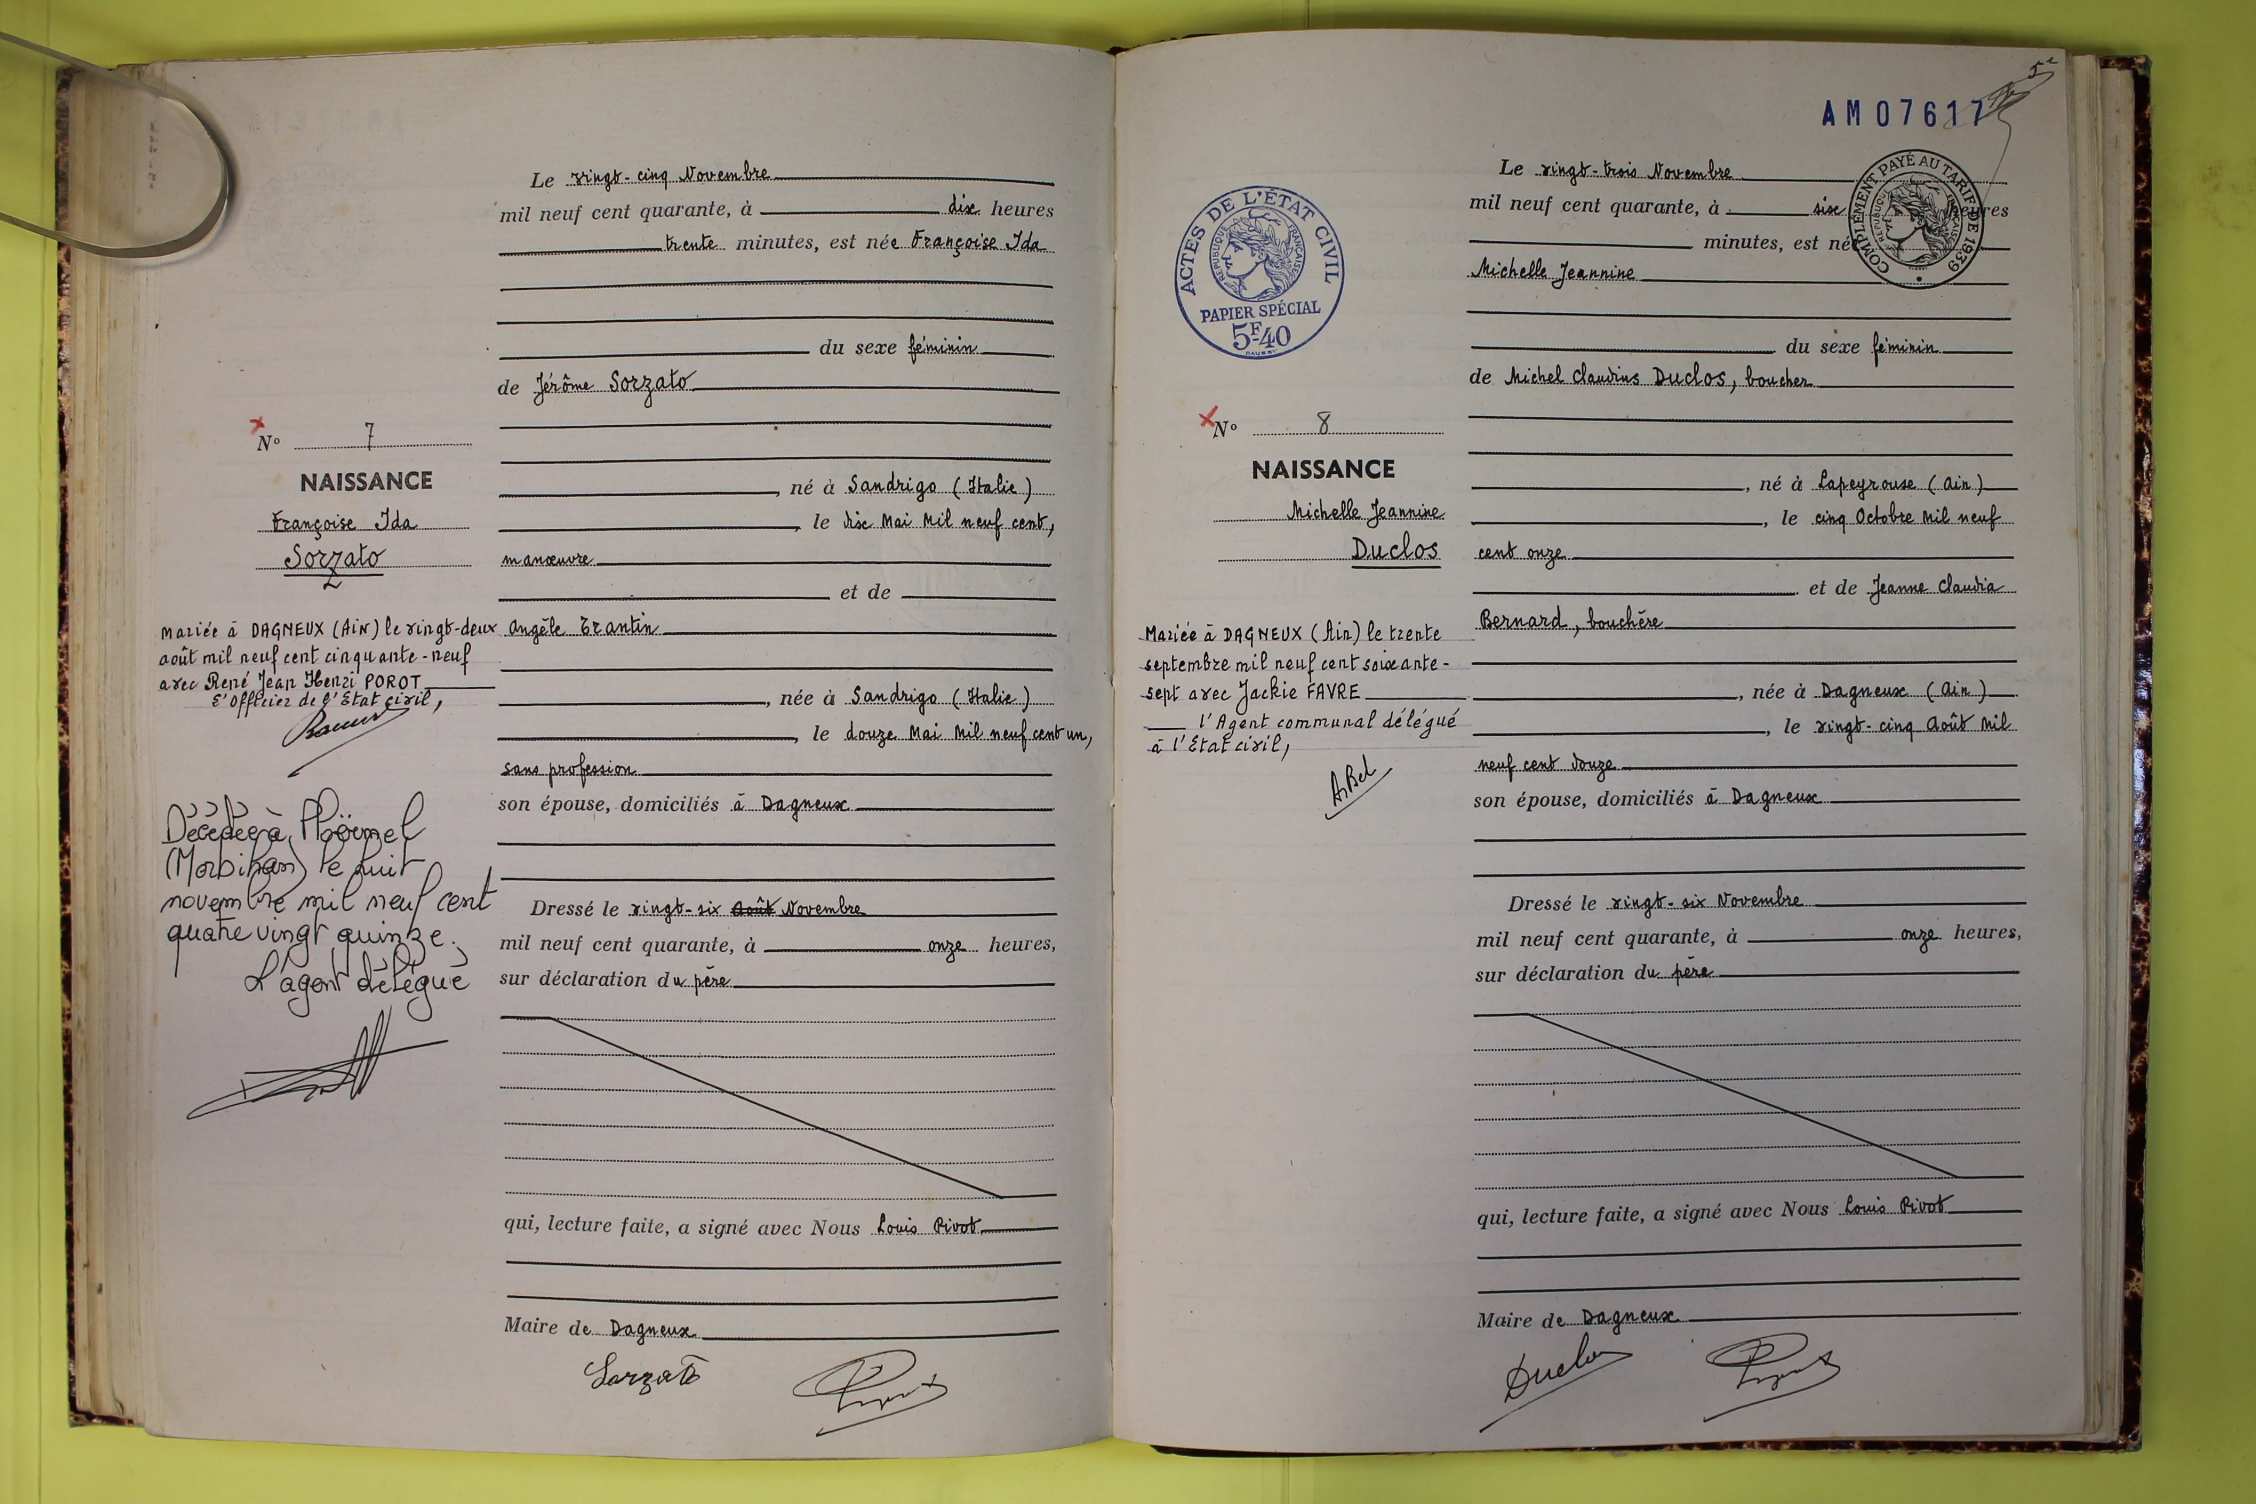 Le vingt-cinq Novembre
mil neuf cent quarante, à dix heures
trente minutes, est née Françoise Ida
du sexe féminin
de Jérôme Sorzato
N° 7
NAISSANCE
Françoise Ida
Sorzato
né à Sandrigo (Italie)
, le dix Mai Mil neuf cent,
manœuvre
et de
Angèle Trantin
, née à Sandrigo (Italie)
, le douze Mai Mil neuf cent un,
sans profession
son épouse, domiciliés à Dagneux
Mariée à DAGNEUX (Ain) le vingt-deux
août mil neuf cent cinquante-neuf
avec René Jean Henri POROT
L'Officier de l'Etat civil,
Décédée à Ploërmel
(Morbihan) le huit
novembre mil neuf cent
quatre vingt quinze.
L'agent délégué
Dressé le vingt-six Août Novembre
mil neuf cent quarante, à onze heures,
sur déclaration du père
qui, lecture faite, a signé avec Nous Louis Pivot
Maire de Dagneux
Sorzato
AM07617
5e
Le vingt-trois Novembre
mil neuf cent quarante, à six heures
minutes, est né
Michelle Jeannine
COMPLÉMENT PAYÉ AU TARIF DE 1939
RÉPUBLIQUE FRANÇAISE
ACTES DE L'ÉTAT CIVIL
RÉPUBLIQUE FRANÇAISE
PAPIER SPÉCIAL
5F40
du sexe féminin
de Michel Claudius Duclos, boucher
N° 8
NAISSANCE
Michelle Jeannine
Duclos
, né à Lapeyrouse (Ain)
, le cinq Octobre Mil neuf
cent onze
et de Jeanne Claudia
Bernard, bouchère
, née à Dagneux (Ain)
, le vingt-cinq Août Mil
neuf cent douze
son épouse, domiciliés à Dagneux
Mariée à DAGNEUX (Ain) le trente
septembre mil neuf cent soixante-
sept avec Jackie FAVRE
l'Agent communal délégué
à l'Etat civil,
Dressé le vingt-six Novembre
mil neuf cent quarante, à onze heures,
sur déclaration du père
qui, lecture faite, a signé avec Nous Louis Pivot
Maire de Dagneux
Duclos